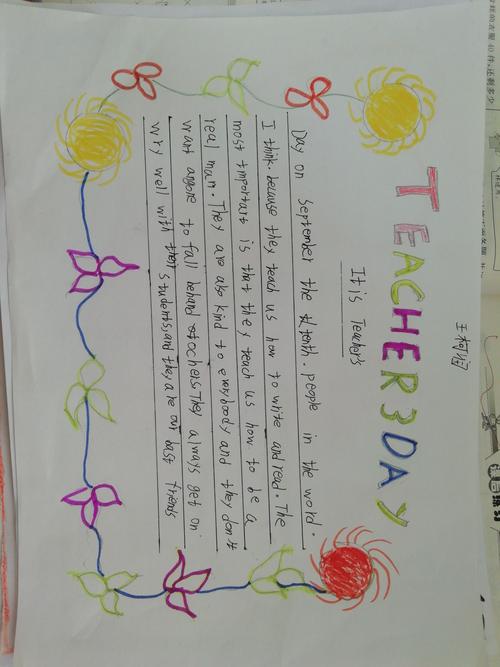 TEACHER3DAY
It is Teacher's
Day on September the tenth. people in the word.
I think. because they teach us how to write and read. The
most important is that they teach us how to be a
real man. They are also kind to everybody and they don't
want anyone to fall behand otochers They always get on
wry well with their students and they are our best friends
王柯